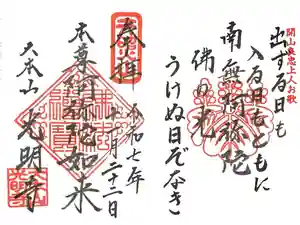 開山良忠上人お歌
出ずる日も
入る日もともに
南無阿弥陀
佛の光
うけぬ日ぞなき
奉拝
令和七年
十一月二十二日
本尊阿弥陀如来
大本山光明寺